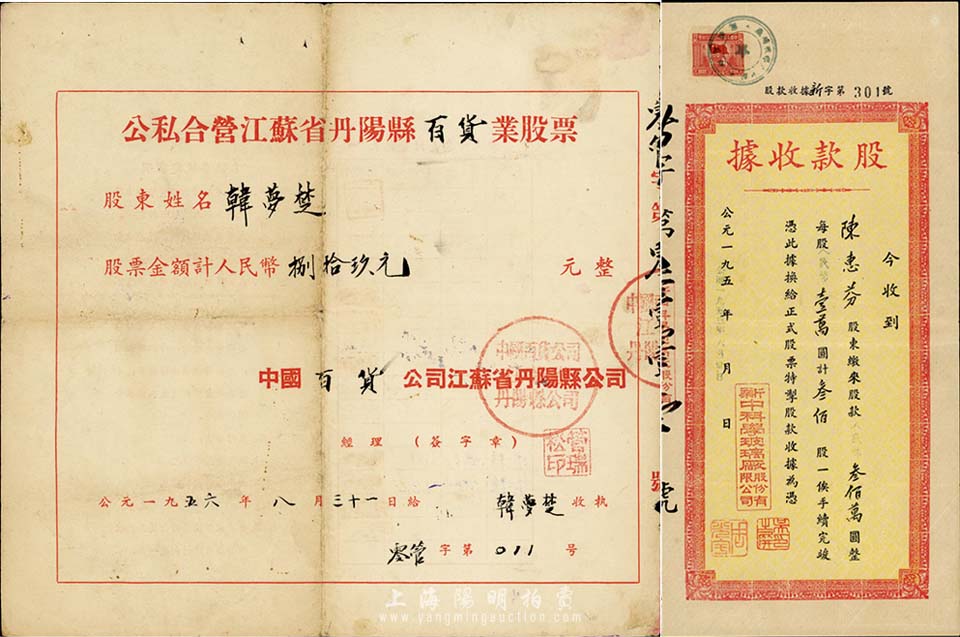 公私合營江蘇省丹陽縣百貨業股票
股東姓名 韓夢楚
股票金額計人民幣 捌拾玖元 元整
中國百貨公司江蘇省丹陽縣公司
經理 (簽字章)
公元一九五六年八月三十一日給 韓夢楚 收執
字第011号
中國百貨公司
丹陽縣公司
字第
號
股款收據新字第301號
股款收據
今收到
陳惠芬 股東繳來股款 叁佰萬圓整
每股 壹萬圓計 叁佰 股一俟手續完竣
憑此據換給正式股票特掣股款收據為憑
公元一九五 年 月 日
新中科學玻璃廠股份有限公司
上海陽明拍賣
www.yangmingauction.com